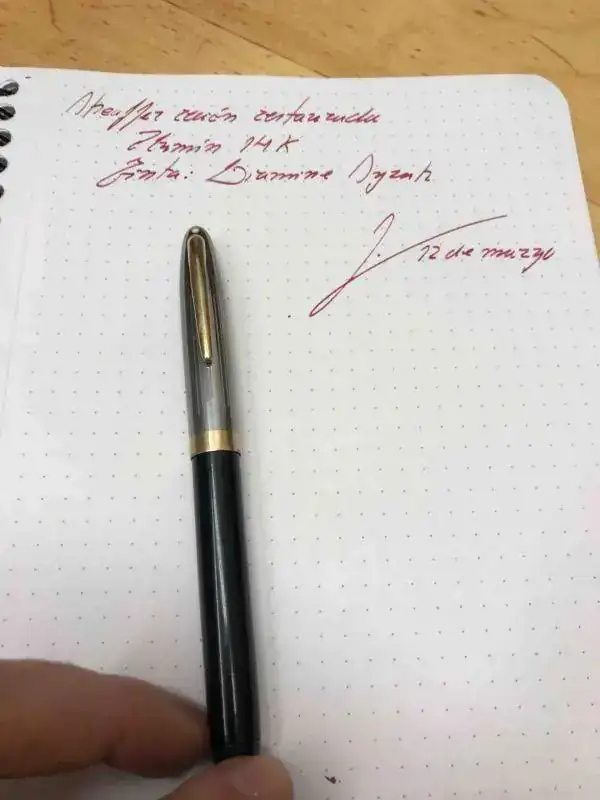 Sheaffer recién restaurada
Plumín 14 K
Tinta: Diamine Syrah
J. 12 de marzo